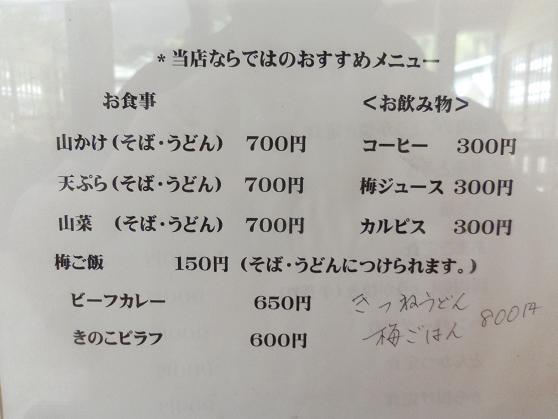 *当店ならではのおすすめメニュー
お食事 <お飲み物>
山かけ(そば・うどん) 700円 コーヒー 300円
天ぷら(そば・うどん) 700円 梅ジュース 300円
山菜 (そば・うどん) 700円 カルピス 300円
梅ご飯 150円 (そば・うどんにつけられます。)
ビーフカレー 650円 きつねうどん
きのこピラフ 600円 梅ごはん 800円